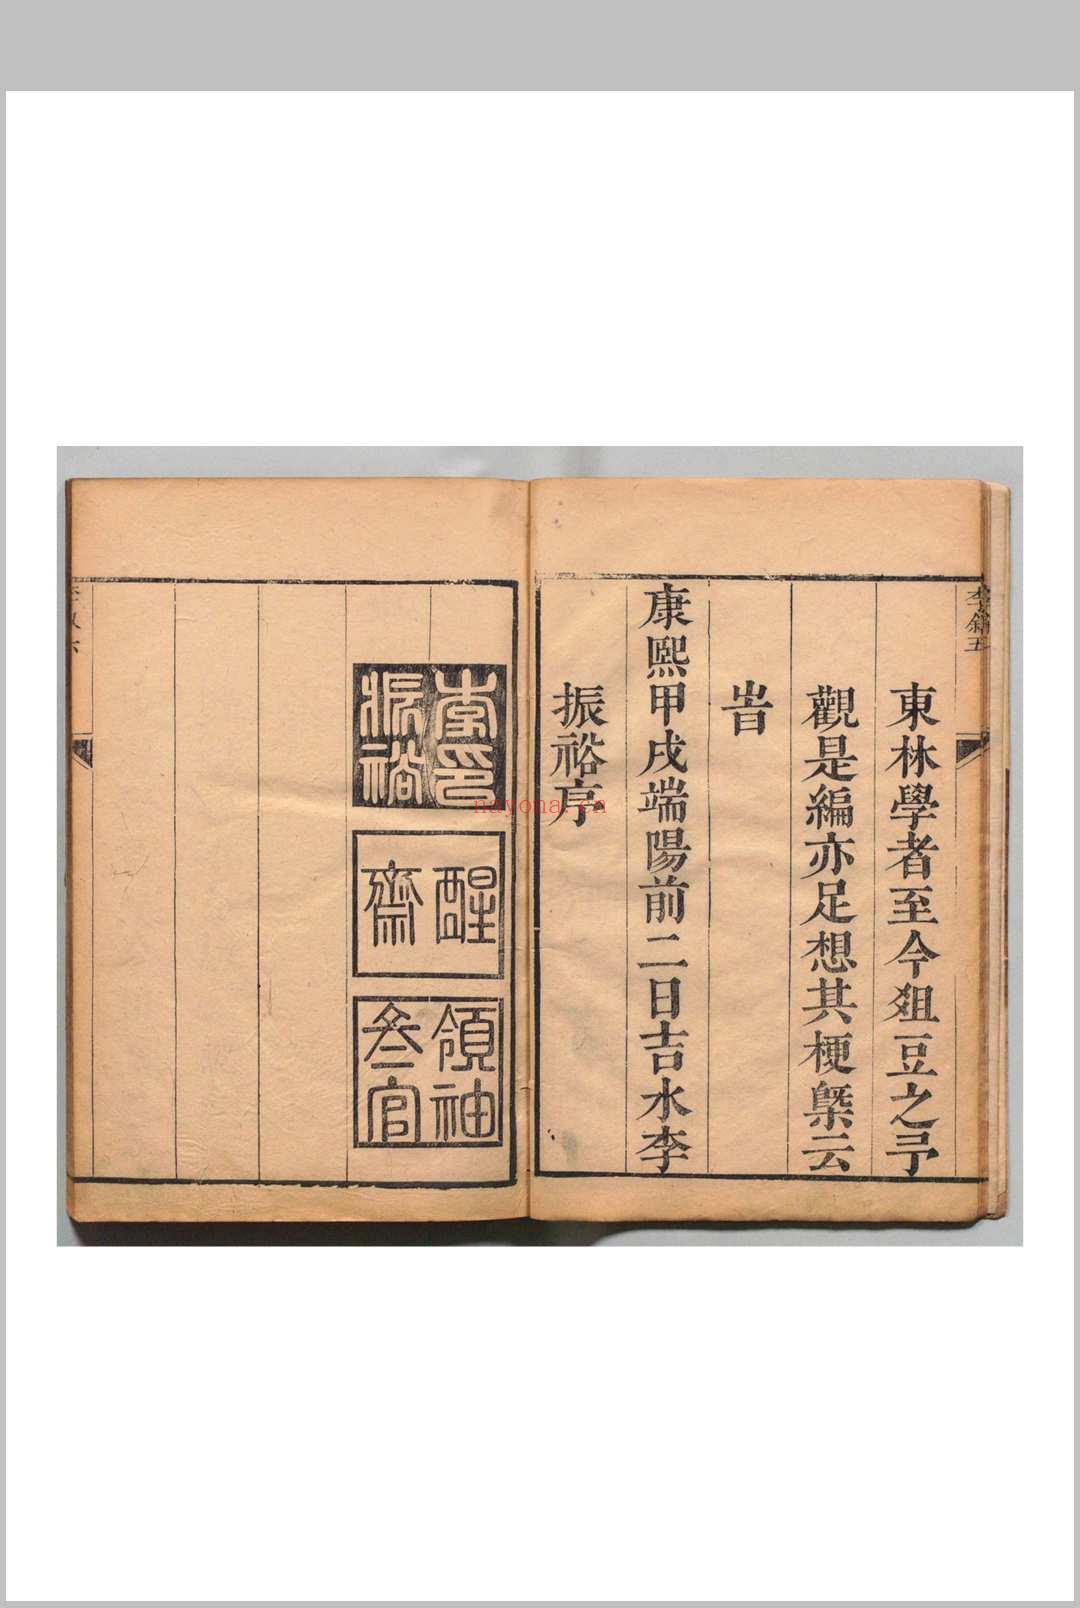 李敘五
東林學者至今俎豆之予
觀是編亦足想其梗槩云
旹
康熙甲戌端陽前二日吉水李
振裕序
李振裕印
醒齋
領袖叄官
nayona.cn